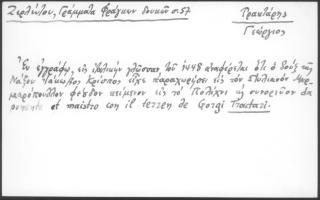 Ζερλέντου, Γράμματα Φράγκων δουκῶν σ. 57
Τρακτάρης
Γεώργιος
Ἐν ἐγγράφῳ εἰς ἰταλικὴν γλῶσσαν τοῦ 1448 ἀναφέρεται ὅτι ὁ δοὺξ τῆς
Νάξου Ἰάκωβος Κρίσπος εἶχε παραχωρήσει εἰς τὸν Στυλιανὸν
φέουδον κείμενον εἰς τὸ Πολίχνι συνορεῦον da
ponente et maistro con il terren de Gorgi Tractari.